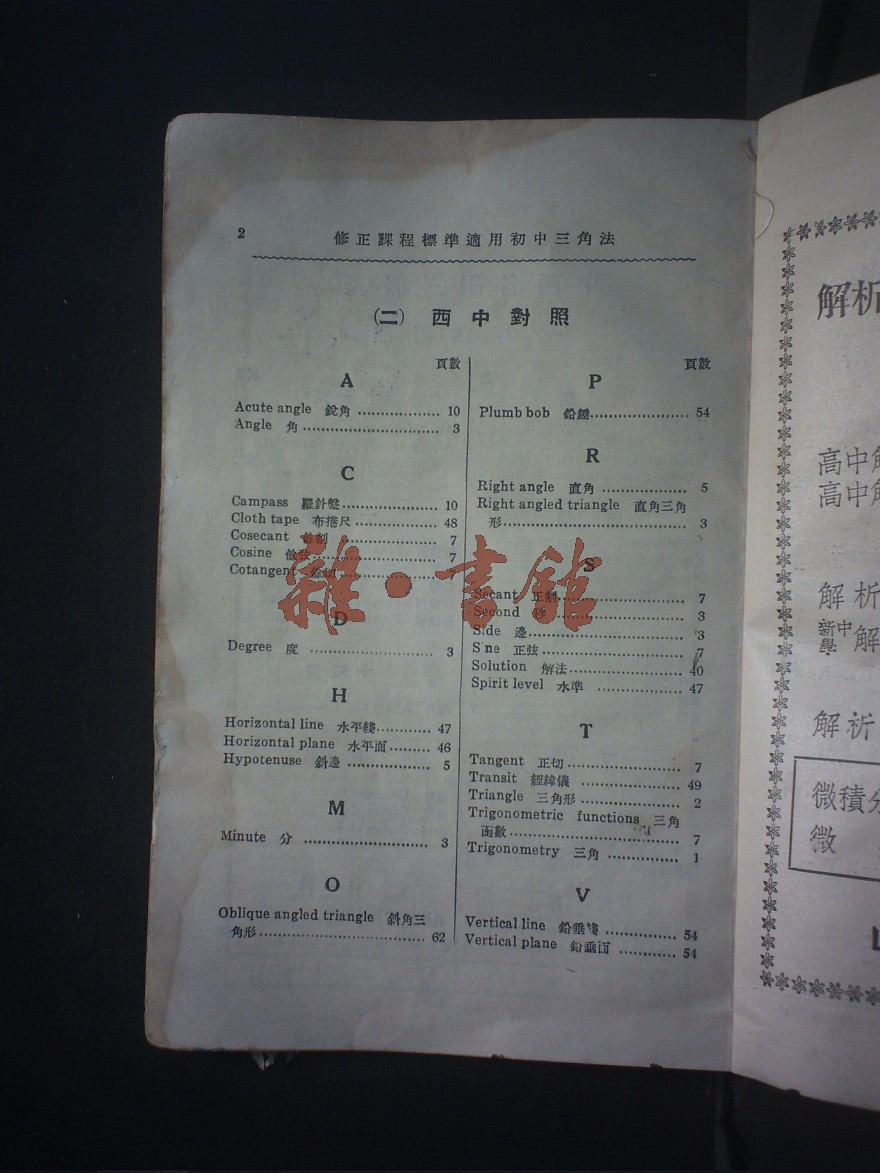 2
修正課程標準適用初中三角法
(二) 西中對照
頁數
A
Acute angle 銳角 10
Angle 角 3
C
Campass 羅針盤 10
Cloth tape 布捲尺 48
Cosecant 餘割 7
Cosine 餘弦 7
Cotangent 餘切
D
Degree 度 3
H
Horizontal line 水平綫 47
Horizontal plane 水平面 46
Hypotenuse 斜邊 5
M
Minute 分 3
O
Oblique angled triangle 斜角三
角形 62
頁數
P
Plumb bob 鉛錘 54
R
Right angle 直角 5
Right angled triangle 直角三角
形 3
S
Secant 正割 7
Second 秒 3
Side 邊 3
Sine 正弦 7
Solution 解法 40
Spirit level 水準 47
T
Tangent 正切 7
Transit 經緯儀 49
Triangle 三角形 2
Trigonometric functions 三角
函數 7
Trigonometry 三角 1
V
Vertical line 鉛垂綫 54
Vertical plane 鉛垂面 54
雜·書館
解析
高中解
高中解
解析
新中學解
解析
微積分
微